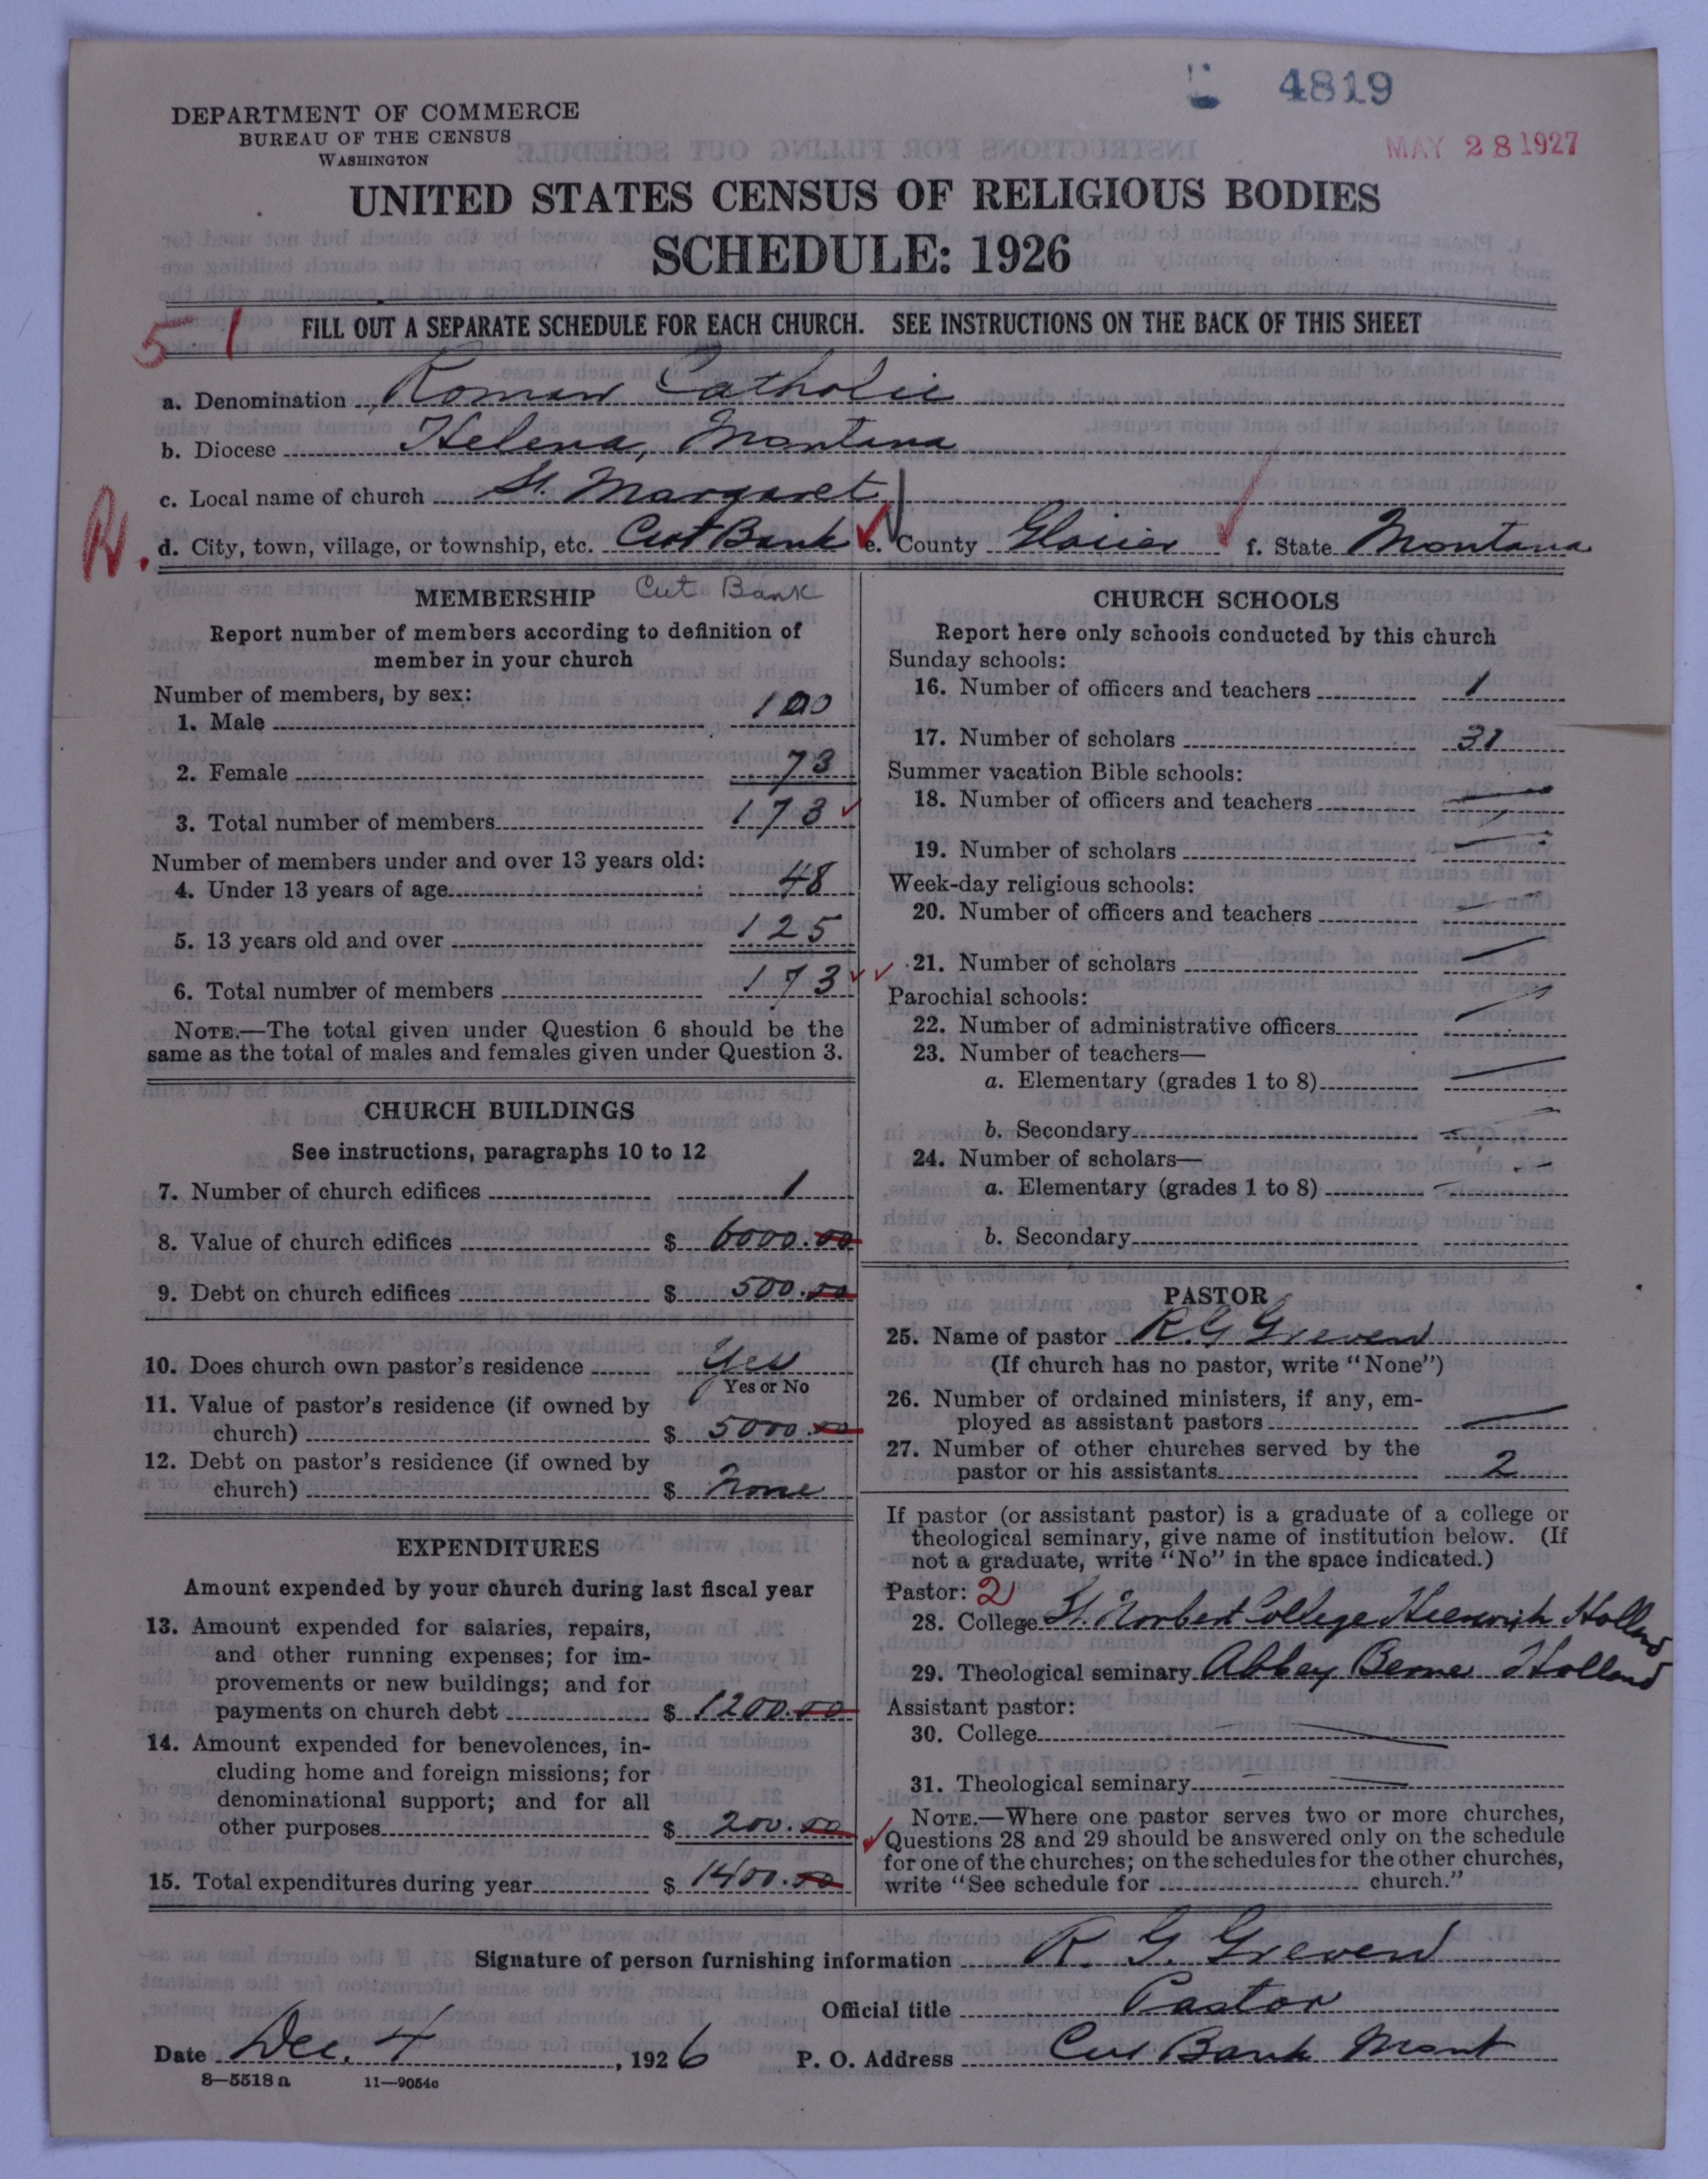 4819
MAY 28 1927
DEPARTMENT OF COMMERCE
BUREAU OF THE CENSUS
WASHINGTON
UNITED STATES CENSUS OF RELIGIOUS BODIES
SCHEDULE: 1926
51
FILL OUT A SEPARATE SCHEDULE FOR EACH CHURCH. SEE INSTRUCTIONS ON THE BACK OF THIS SHEET
a. Denomination Roman Catholic
b. Diocese Helena, Montana
c. Local name of church St. Margaret
d. City, town, village, or township, etc. Cut Bank e. County Glacier f. State Montana
Cut Bank
MEMBERSHIP
Report number of members according to definition of
member in your church
Number of members, by sex:
1. Male 100
2. Female 73
3. Total number of members 173
Number of members under and over 13 years old:
4. Under 13 years of age 48
5. 13 years old and over 125
6. Total number of members 173
NOTE.—The total given under Question 6 should be the
same as the total of males and females given under Question 3.
CHURCH BUILDINGS
See instructions, paragraphs 10 to 12
7. Number of church edifices 1
8. Value of church edifices $ 6000.00
9. Debt on church edifices $ 500.00
10. Does church own pastor's residence Yes
Yes or No
11. Value of pastor's residence (if owned by
church) $ 5000.00
12. Debt on pastor's residence (if owned by
church) $ None
EXPENDITURES
Amount expended by your church during last fiscal year
13. Amount expended for salaries, repairs,
and other running expenses; for im-
provements or new buildings; and for
payments on church debt $ 1200.00
14. Amount expended for benevolences, in-
cluding home and foreign missions; for
denominational support; and for all
other purposes $ 200.00
15. Total expenditures during year $ 1400.00
CHURCH SCHOOLS
Report here only schools conducted by this church
Sunday schools:
16. Number of officers and teachers 1
17. Number of scholars 31
Summer vacation Bible schools:
18. Number of officers and teachers —
19. Number of scholars —
Week-day religious schools:
20. Number of officers and teachers —
21. Number of scholars —
Parochial schools:
22. Number of administrative officers —
23. Number of teachers—
a. Elementary (grades 1 to 8) —
b. Secondary —
24. Number of scholars—
a. Elementary (grades 1 to 8) —
b. Secondary
PASTOR
25. Name of pastor R G Grevend
(If church has no pastor, write "None")
26. Number of ordained ministers, if any, em-
ployed as assistant pastors —
27. Number of other churches served by the
pastor or his assistants 2
If pastor (or assistant pastor) is a graduate of a college or
theological seminary, give name of institution below. (If
not a graduate, write "No" in the space indicated.)
Pastor: 2
28. College St. Norbert College Holland
29. Theological seminary Abbey Berne Holland
Assistant pastor:
30. College —
31. Theological seminary —
NOTE.—Where one pastor serves two or more churches,
Questions 28 and 29 should be answered only on the schedule
for one of the churches; on the schedules for the other churches,
write "See schedule for church."
Signature of person furnishing information R. G. Grevend
Official title Pastor
Date Dec. 4, 1926 P. O. Address Cut Bank Mont
8—5518 a 11—9054c